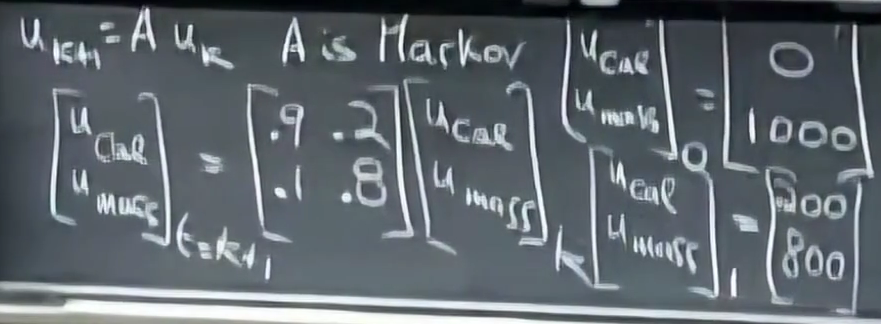 u_{k+1} = A u_k   A is Markov   [u_Cal; u_mass]_0 = [0; 1000]
[u_Cal; u_mass]_{t=k+1} = [.9 .2; .1 .8] [u_Cal; u_mass]_k   [u_Cal; u_mass]_1 = [200; 800]